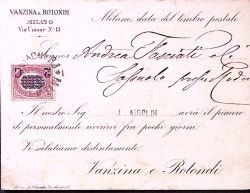 VANZINA & ROTONDI
MILANO
Via Unione N. 13
Milano, data del timbro postale
Signor Andrea Fasciati & C.
Sassuolo presso Modena
Il nostro Sig. J. AIROLDI avrà il piacere
di personalmente riverirvi fra pochi giorni.
Vi salutiamo distintamente.
Vanzina e Rotondi